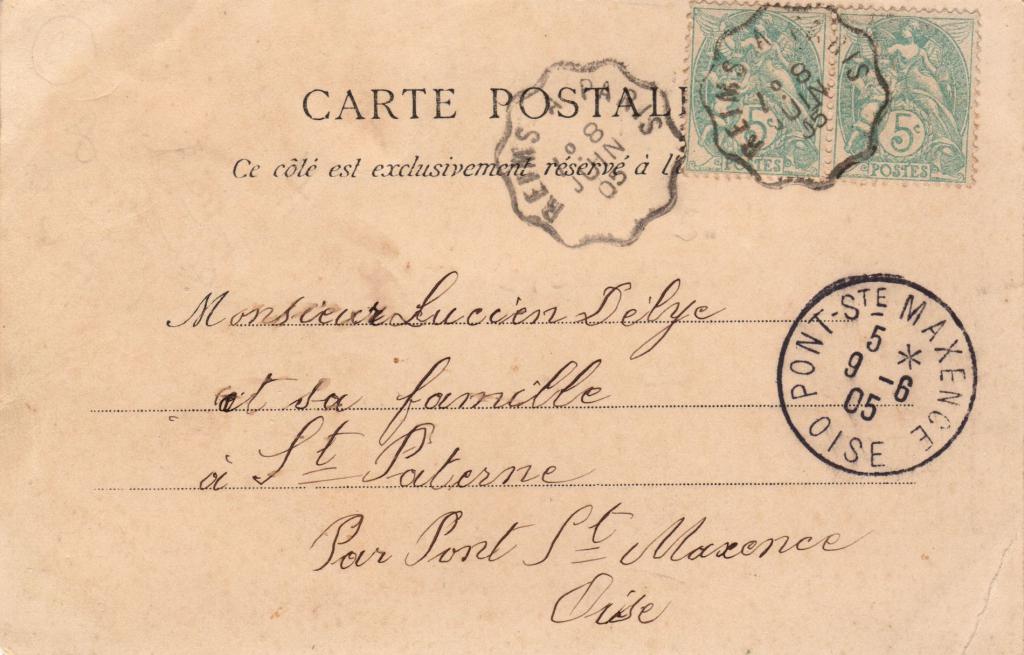 CARTE POSTALE
Ce côté est exclusivement réservé à l'
REIMS A PARIS
8
JUIN
05
REIMS A PARIS
1°
8
JUIN
05
5c
POSTES
5c
POSTES
Monsieur Lucien Délye
et sa famille
à St Paterne
Par Pont St Maxence
Oise
PONT-STE MAXENCE
5 *
9 -6
05
OISE